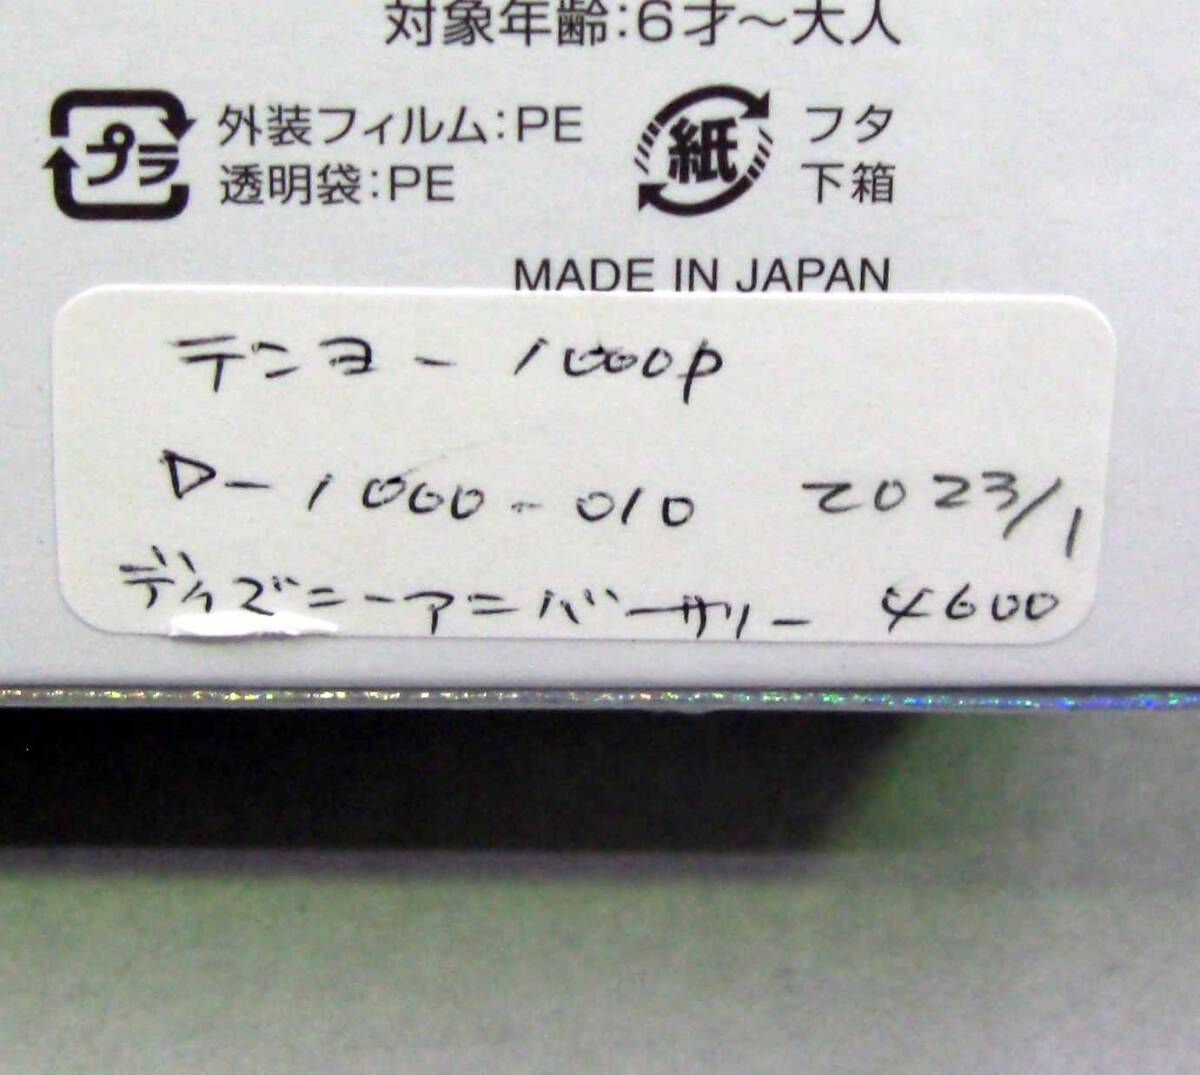 対象年齢:6才〜大人
プラ 外装フィルム:PE
透明袋:PE
紙 フタ
下箱
MADE IN JAPAN
テンヨー 1000P
D-1000-010 2023/1
ディズニーアニバーサリー 4600